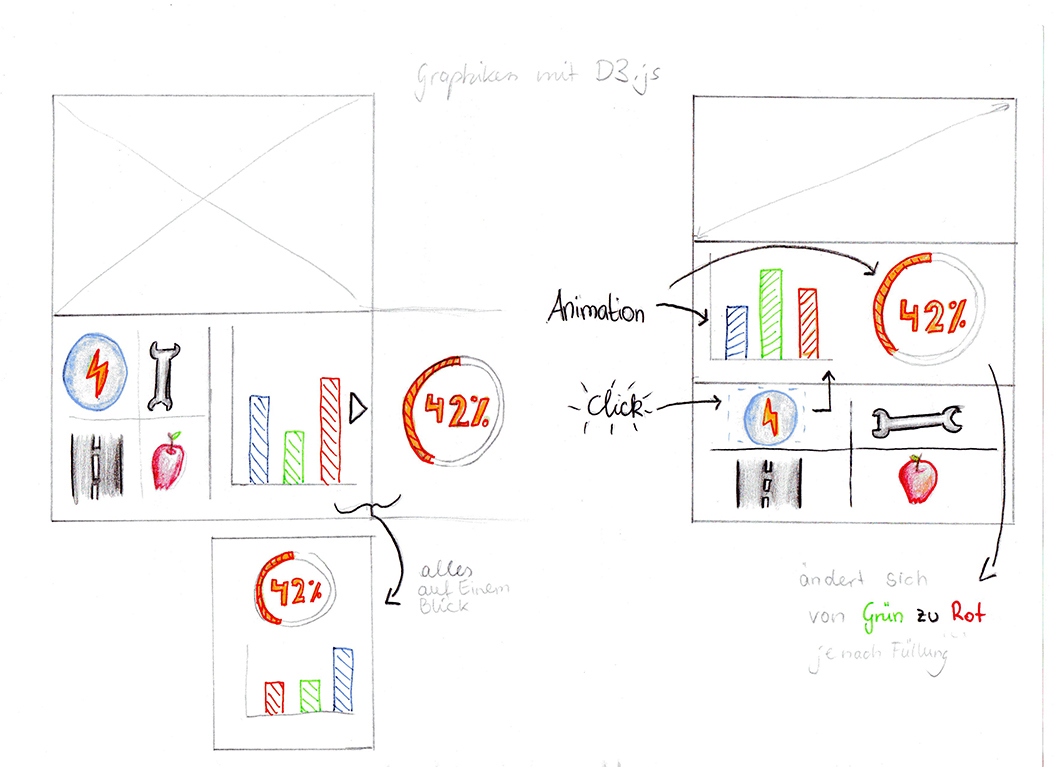 Graphiken mit D3.js
42%
42%
alles
auf Einem
Blick
Animation
Click
42%
ändert sich
von Grün zu Rot
je nach Füllung